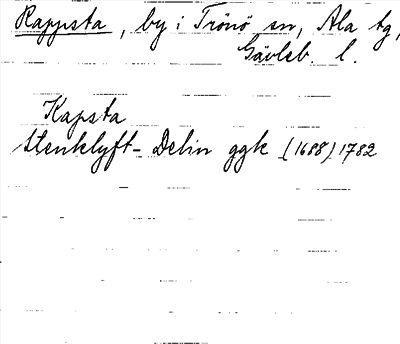 Rappsta, by i Trönö sn, Ala tg,
Gävleb. l.
Kapsta
Stenklyft-Delin ggk (1688) 1782